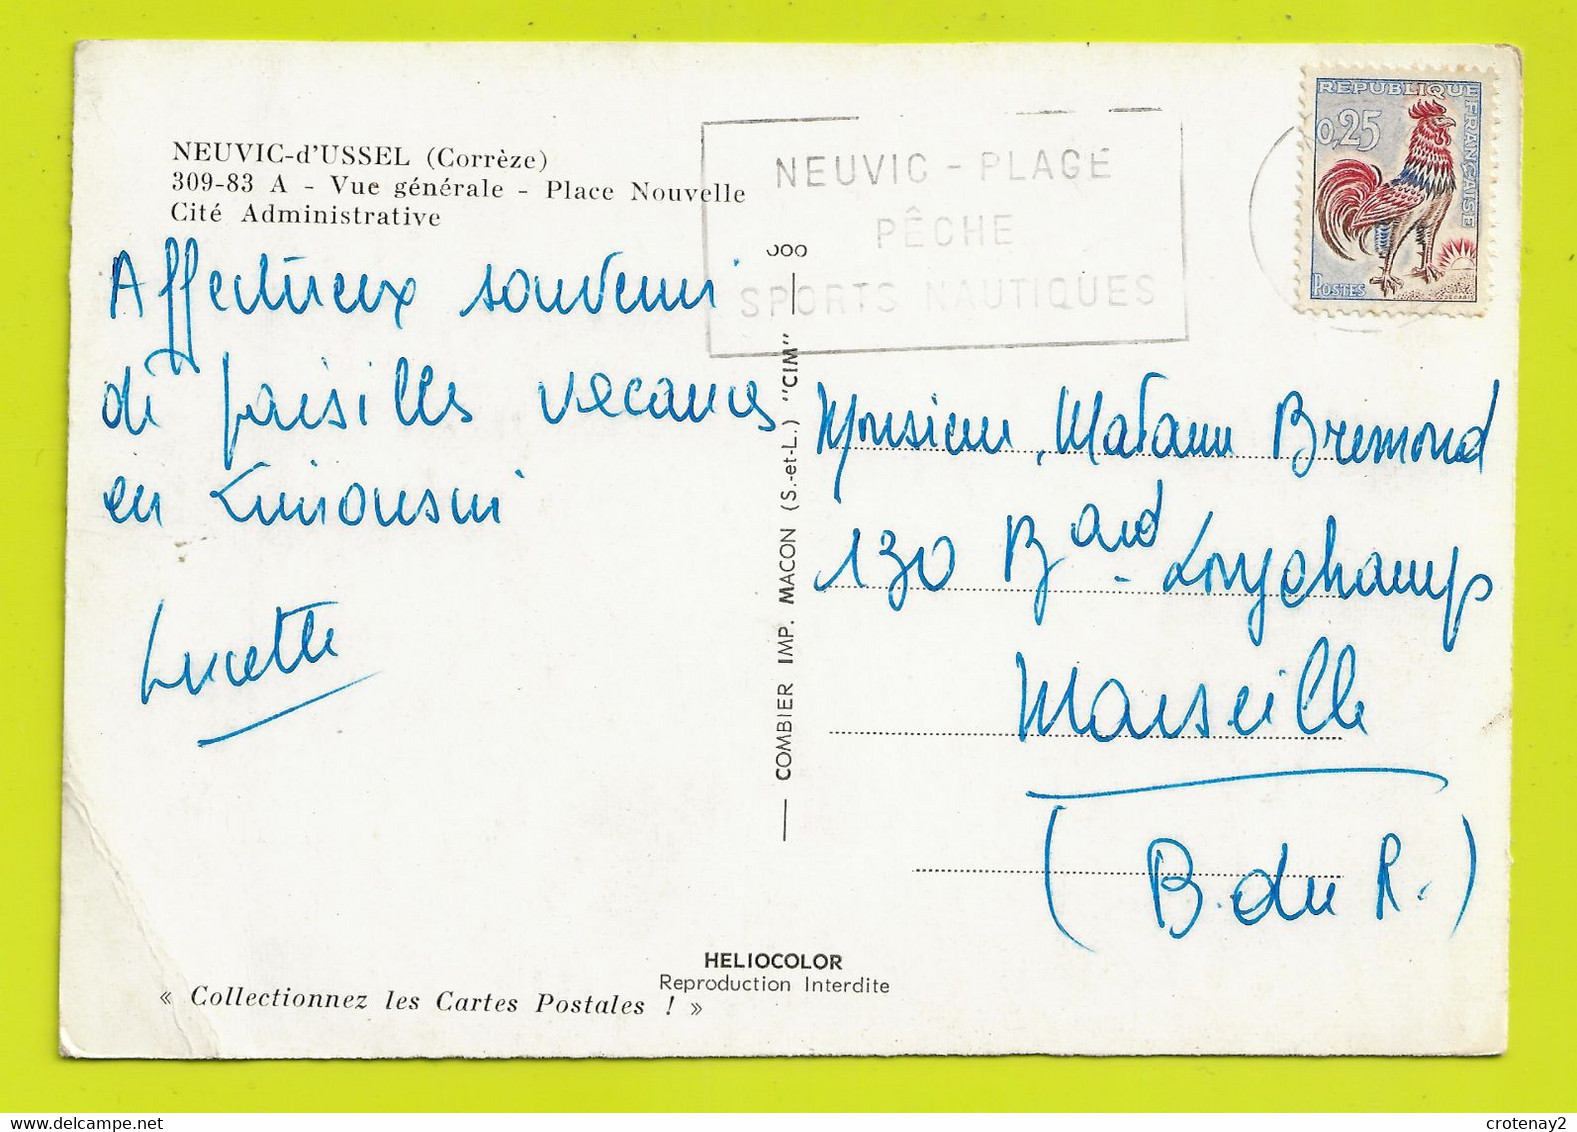 NEUVIC-d'USSEL (Corrèze)
309-83 A - Vue générale - Place Nouvelle
Cité Administrative
NEUVIC - PLAGE
PÊCHE
SPORTS NAUTIQUES
REPUBLIQUE FRANÇAISE
0,25
POSTES
Affectueux souvenir
de paisibles vacances
en Limousin
Lucette
COMBIER IMP. MACON (S.-et-L.) "CIM"
Monsieur, Madame Bremond
130 Bard Longchamp
Marseille
(B. du R.)
HELIOCOLOR
Reproduction Interdite
« Collectionnez les Cartes Postales ! »
crotenay2
delcampe.net